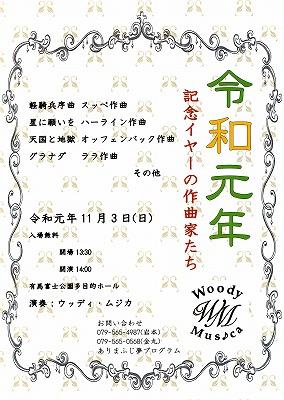 令和元年
記念イヤーの作曲家たち
軽騎兵序曲 スッペ作曲
星に願いを ハーライン作曲
天国と地獄 オッフェンバック作曲
グラナダ ララ作曲
その他
令和元年11月3日(日)
入場無料
開場 13:30
開演 14:00
有馬富士公園多目的ホール
演奏:ウッディ・ムジカ
お問い合わせ
079-565-4987(岩本)
079-565-0568(金丸)
ありまふじ夢プログラム
Woody
WM
Mus♪ca